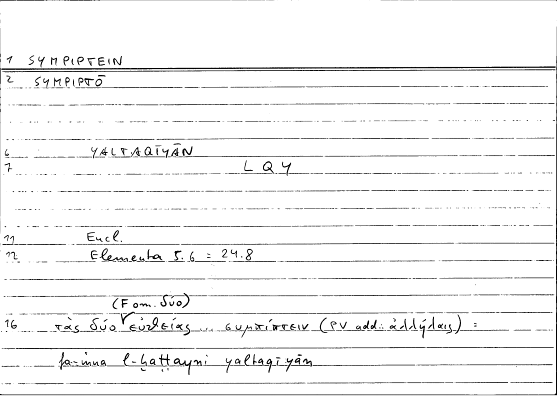 1 SYMPIPTEIN
2 SYMPIPTŌ
6 YALTAQĪYĀN
7 LQY
11 Eucl.
12 Elementa 5.6 = 24.8
(F om. δύο)
16 τὰς δύο εὐθείας ... συμπίπτειν (PV add.: ἀλλήλαις) =
fa-inna l-ḫaṭṭayni yaltaqīyān